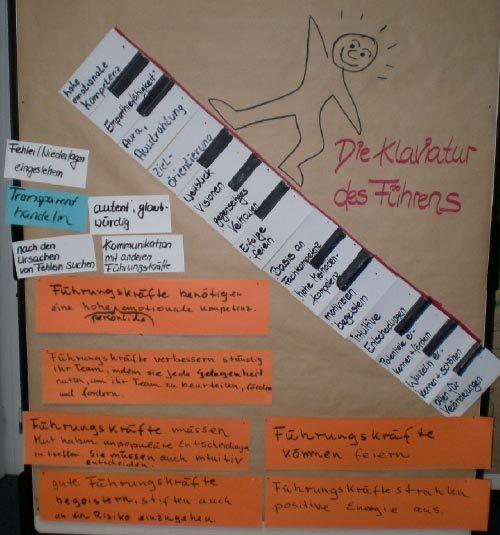 Die Klaviatur
des Führens
hohe
emotionale
Kompetenz
Empathiefähigkeit
Aura,
Ausstrahlung
Ziel-
orientierung
Weitblick
Visionen
gegenseitiges
Vertrauen
Erfolge
feiern
Basis an
Fachkompetenz
hohe Methoden-
kompetenz
motivieren
begeistern
Intuitive
Entscheidungen
Potentiale er-
kennen + fördern
Wurzeln er-
kennen
offen für
Veränderungen
Fehler/Niederlagen
eingestehen
Transparent
handeln
autent., glaub-
würdig
nach den
Ursachen
von Fehlern suchen
Kommunikation
mit anderen
Führungskräfte
Führungskräfte benötigen
eine hohe emotionale Kompetenz.
Führungskräfte verbessern ständig
ihr Team, indem sie jede Gelegenheit
nutzen, um ihr Team zu beurteilen, fördern
und fordern.
Führungskräfte müssen
Mut haben unpopuläre Entscheidungen
zu treffen. Sie müssen auch intuitiv
entscheiden.
Führungskräfte
können feiern
gute Führungskräfte
begeistern, stiften auch
an ein Risiko einzugehen.
Führungskräfte strahlen
positive Energie aus.